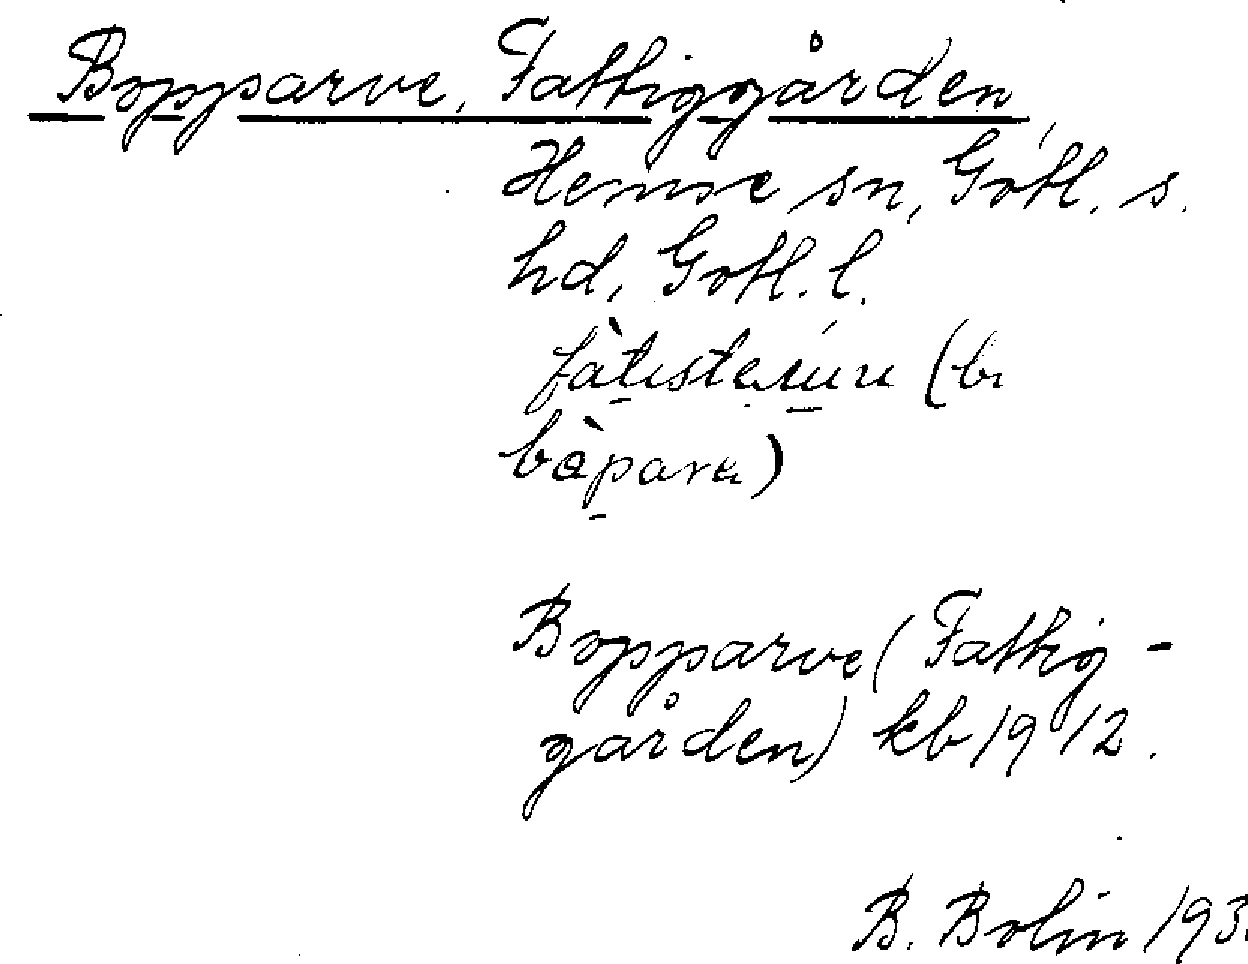 Bopparve, Fattiggården,
Hemse sn, Gotl. s.
hd, Gotl. l.
(bı
bàpava)
Bopparve (Fattig-
gården) kb 1912.
B. Bolin 193